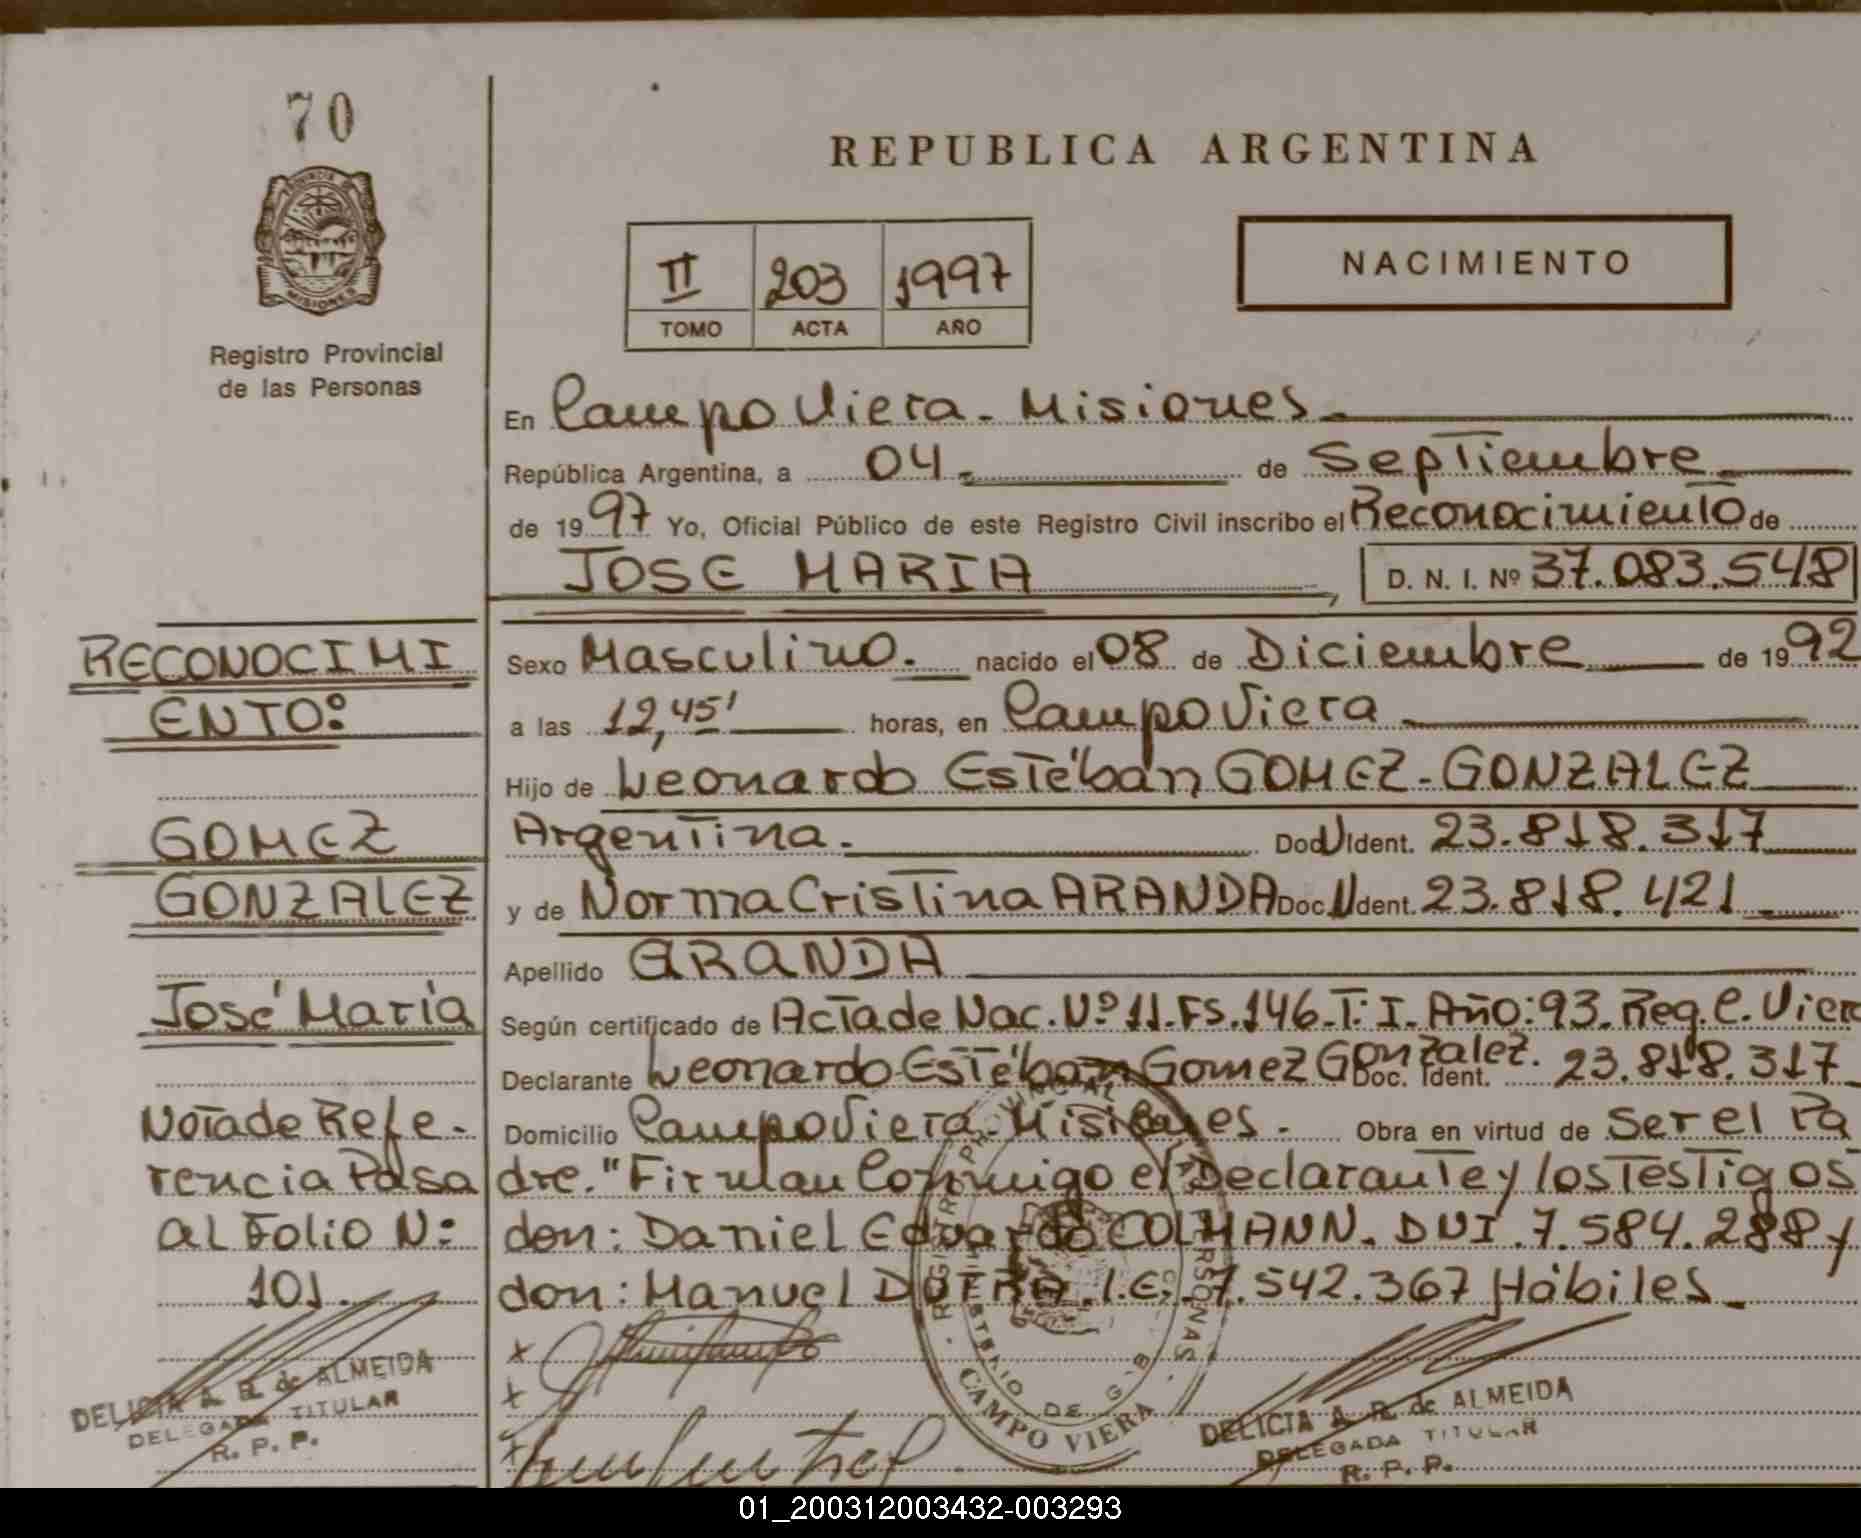 70
REPUBLICA ARGENTINA
PROVINCIA DE
MISIONES
Registro Provincial
de las Personas
II 203 1997
TOMO ACTA AÑO
NACIMIENTO
En Campo Viera - Misiones
República Argentina, a 04 de Septiembre
de 1997 Yo, Oficial Público de este Registro Civil inscribo el Reconocimiento de
JOSE MARIA, D. N. I. Nº 37.083.548
RECONOCIMI
ENTO:
GOMEZ
GONZALEZ
José María
Nota de Refe-
rencia Pasa
al Folio N:
101
DELICIA A. R. de ALMEIDA
DELEGADA TITULAR
R. P. P.
Sexo Masculino. nacido el 08 de Diciembre de 1992
a las 12,45' horas, en Campo Viera
Hijo de Leonardo Estéban GOMEZ-GONZALEZ
Argentina. Doc U Ident. 23.818.317
y de Norma Cristina ARANDA Doc. U Ident. 23.818.421
Apellido ARANDA
Según certificado de Acta de Nac. Nº 11. Fs. 146. T: I. Año: 93. Reg. C. Viera
Declarante Leonardo Estéban Gomez Gonzalez. Doc. Ident. 23.818.317
Domicilio Campo Viera - Misiones. Obra en virtud de Ser el Pa
dre." Firman Conmigo el Declarante y los Testigos
don: Daniel Eduardo COLMANN. DNI. 7.584.288 y
don: Manuel DUTRA. L.E. 7.542.367 Hábiles
REGISTRO PROVINCIAL DE LAS PERSONAS
MINISTERIO DE G.
CAMPO VIERA
DELICIA A. R. de ALMEIDA
DELEGADA TITULAR
R. P. P.
01_200312003432-003293